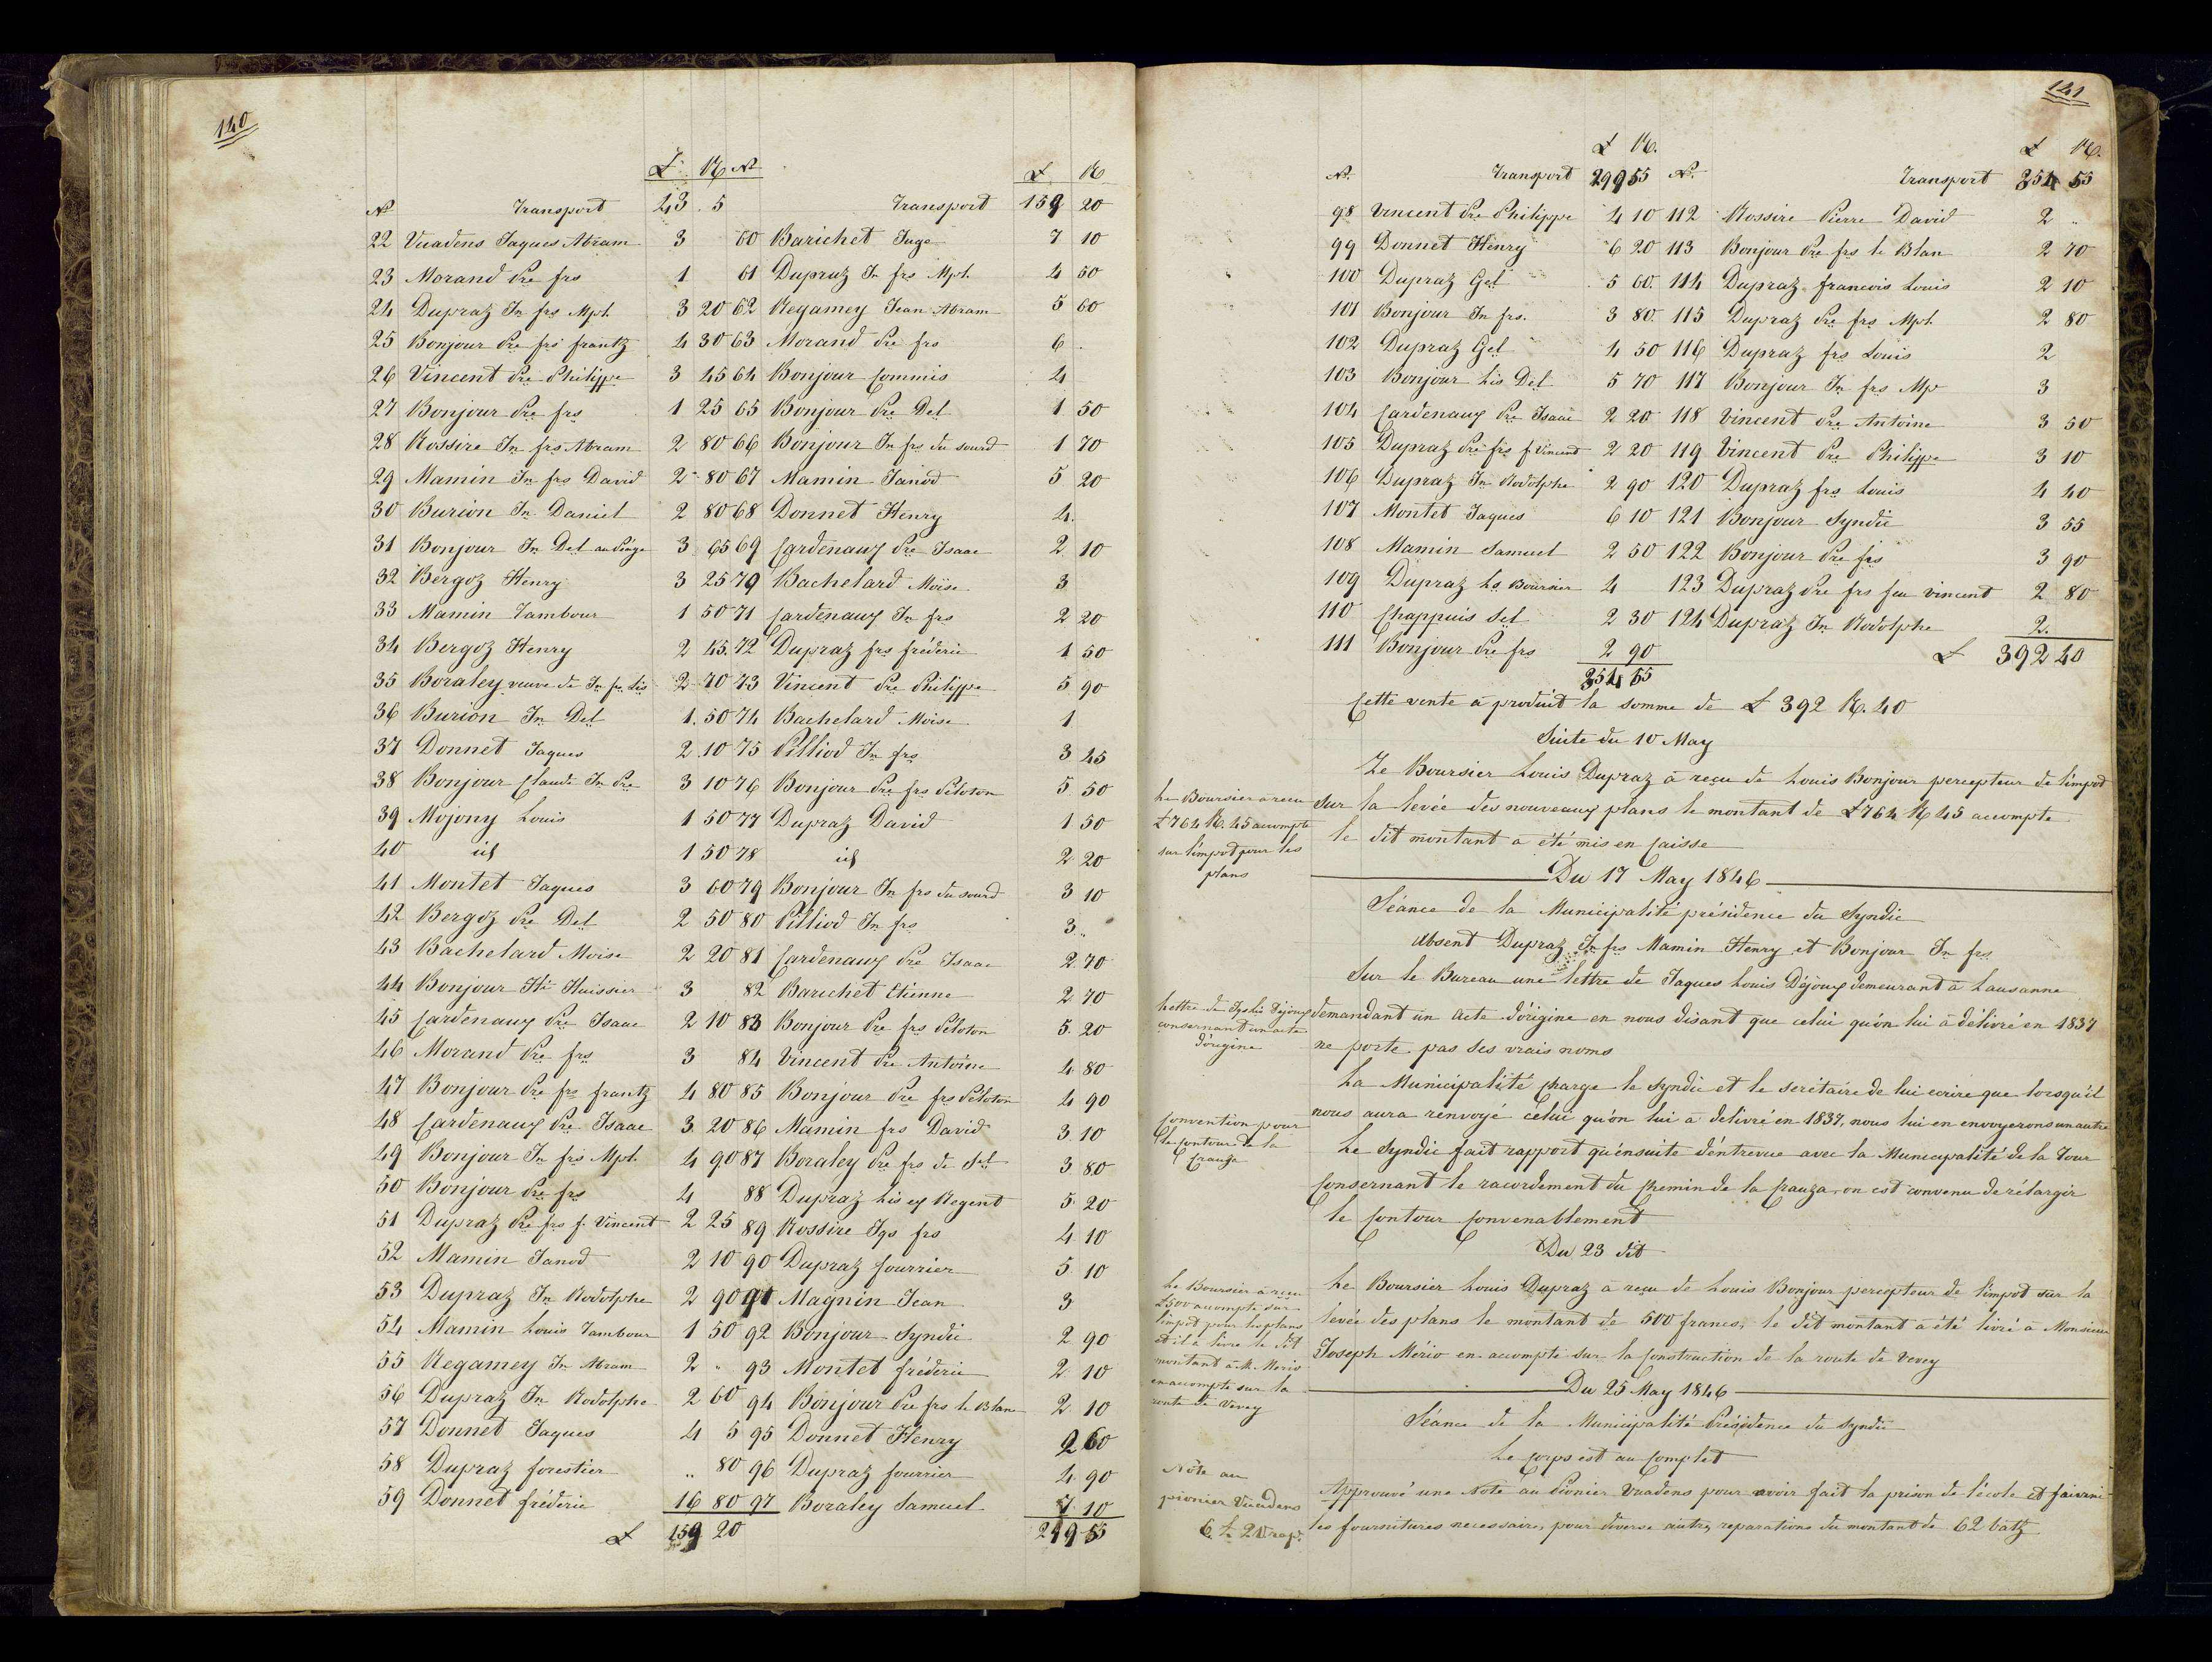 140
£ R N°
N° Transport 43 . 5
22 Vuadens Jaques Abram 3
23 Morand Pre frs 1
24 Dupraz Jn frs Mpl. 3 20
25 Bonjour Pre frs frantz 4 30
26 Vincent Pre Philippe 3 45
27 Bonjour Pre frs 1 25
28 Rossire Jn frs Abram 2 80
29 Mamin Jn frs David 2 80
30 Burion Jn Daniel 2 80
31 Bonjour Jn Del au Péage 3 65
32 Bergoz Henry 3 25
33 Mamin Tambour 1 50
34 Bergoz Henry 2 45
35 Boraley veuve de Jn frs Lis 2 70
36 Burion Jn Del 1. 50
37 Donnet Jaques 2 10
38 Bonjour Claude Jn Pre 3 10
39 Mojony Louis 1 50
40 id 1 50
41 Montet Jaques 3 60
42 Bergoz Pre Del 2 50
43 Bachelard Moise 2 20
44 Bonjour Hri Huissier 3
45 Cardenaux Pre Isaac 2 10
46 Morand Pre frs 3
47 Bonjour Pre frs frantz 4 80
48 Cardenaux Pre Isaac 3 20
49 Bonjour Jn frs Mpl. 4 90
50 Bonjour Pre frs 4
51 Dupraz Pre frs f. Vincent 2 25
52 Mamin Janod 2 10
53 Dupraz Jn Rodolphe 2 90
54 Mamin Louis Tambour 1 50
55 Regamey Jn Abram 2 "
56 Dupraz Jn Rodolphe 2 60
57 Donnet Jaques 4 5
58 Dupraz forestier " 80
59 Donnet fréderic 16 80
£ 159 20
£ R
Transport 159 20
60 Barichet Juge 7 10
61 Dupraz Jn frs Mpl. 4 50
62 Regamey Jean Abram 5 60
63 Morand Pre frs 6 .
64 Bonjour Commis 4
65 Bonjour Pre Del 1 50
66 Bonjour Jn frs du sourd 1 70
67 Mamin Janod 5 20
68 Donnet Henry 4.
69 Cardenaux Pre Isaac 2 10
70 Bachelard Moïse 3
71 Cardenaux Jn frs 2 20
72 Dupraz frs fréderic 1 50
73 Vincent Pre Philippe 5 90
74 Bachelard Moise 1
75 Pilliod Jn frs 3 45
76 Bonjour Pre frs Péloton 5 50
77 Dupraz David 1 50
78 id 2 20
79 Bonjour Jn frs du sourd 3 10
80 Pilliod Jn frs 3 "
81 Cardenaux Pre Isaac 2 70
82 Barichet Etienne 2 70
83 Bonjour Pre frs Péloton 5. 20
84 Vincent Pre Antoine 4 80
85 Bonjour Pre frs Péloton 4 90
86 Mamin frs David 3 10
87 Boraley Pre frs de Sel 3 80
88 Dupraz Lis ex Regent 5. 20
89 Rossire Jqs frs 4 10
90 Dupraz fourrier 5 10
91 Magnin Jean 3
92 Bonjour Syndic 2 90
93 Montet fréderic 2 10
94 Bonjour Pre frs le Blanc 2 10
95 Donnet Henry 2 60
96 Dupraz fourrier 4 90
97 Boraley Samuel 7 10
299 55
141
£ R.
N°. Transport 299 55
98 Vincent Pre Philippe 4 10
99 Donnet Henry 6 20
100 Dupraz Gel 5 60.
101 Bonjour Jn frs. 3 80.
102 Dupraz Gel 4 50
103 Bonjour Lis Del 5 70
104 Cardenaux Pre Isaac 2 20
105 Dupraz Pre frs f. Vincent 2 20
106 Dupraz Jn Rodolphe 2 90
107 Montet Jaques 6 10
108 Mamin Samuel 2 50
109 Dupraz Ls Boursier 4
110 Chappuis Sel 2 30
111 Bonjour Pre frs 2 90
354 55
£ R.
N°. Transport 354 55
112 Rossire Pierre David 2 "
113 Bonjour Pre frs le Blan 2 70
114 Dupraz francois Louis 2 10
115 Dupraz Pre frs Mpl. 2 80
116 Dupraz frs Louis 2
117 Bonjour Jn frs Mp 3
118 Vincent Pre Antoine 3 50
119 Vincent Pre Philippe 3 10
120 Dupraz frs Louis 4 40
121 Bonjour Syndic 3 55
122 Bonjour Pre frs 3 90
123 Dupraz Pre frs feu vincent 2 80
124 Dupraz Jn Rodolphe 2.
£ 392 40
Cette vente a produit la somme de £ 392 R. 40
Suite du 10 May
Le Boursier Louis Dupraz à reçu de Louis Bonjour percepteur de l'impot
sur la levée des nouveaux plans le montant de £ 764 R 45 accompte
le dit montant a été mis en Caisse
Le Boursier a reçu
£ 764 R. 45 accompte
sur l'impot pour les
plans
Du 17 May 1846
Séance de la Municipalité présidence du Syndic
Absent Dupraz Jn frs Mamin Henry et Bonjour Jn frs
Sur le Bureau une lettre de Jaques Louis Déjoux demeurant à Lausanne
demandant un Acte d'origine en nous disant que celui qu'on lui à délivré en 1837
ne porte pas ses vrais noms
Lettre de Jqs Lis Déjoux
consernant un acte
d'origine
La Municipalité charge le Syndic et le secrétaire de lui ecrire que lorsqu'il
nous aura renvoyé celui qu'on lui à delivré en 1837, nous lui en envoyerons un autre
Le Syndic fait rapport qu'ensuite d'entrevue avec la Municipalité de la Tour
Consernant le racordement du Chemin de la Crauza, on est convenu de rélargir
le Contour Convenablement
Convention pour
le Contour de la
Crauza
Du 23 dit
Le Boursier Louis Dupraz à reçu de Louis Bonjour percepteur de l'impot sur la
levée des plans le montant de 500 francs, le dit montant a été livré à Monsieur
Joseph Mério en accompte sur la Construction de la route de Vevey
Le Boursier à reçu
£ 500 accompte sur
l'impot pour les plans
et il à livré le dit
montant à M. Merio
en accompte sur la
route de Vevey
Du 25 May 1846
Séance de la Municipalité Présidence du Syndic
Le Corps est au Complet
Approuvé une Note au Pionier Vuadens pour avoir fait la prison de l'école et fournie
les fournitures necessaires, pour diverse autres reparations du montant de 62 batz
Nôte au
pionier Vuadens